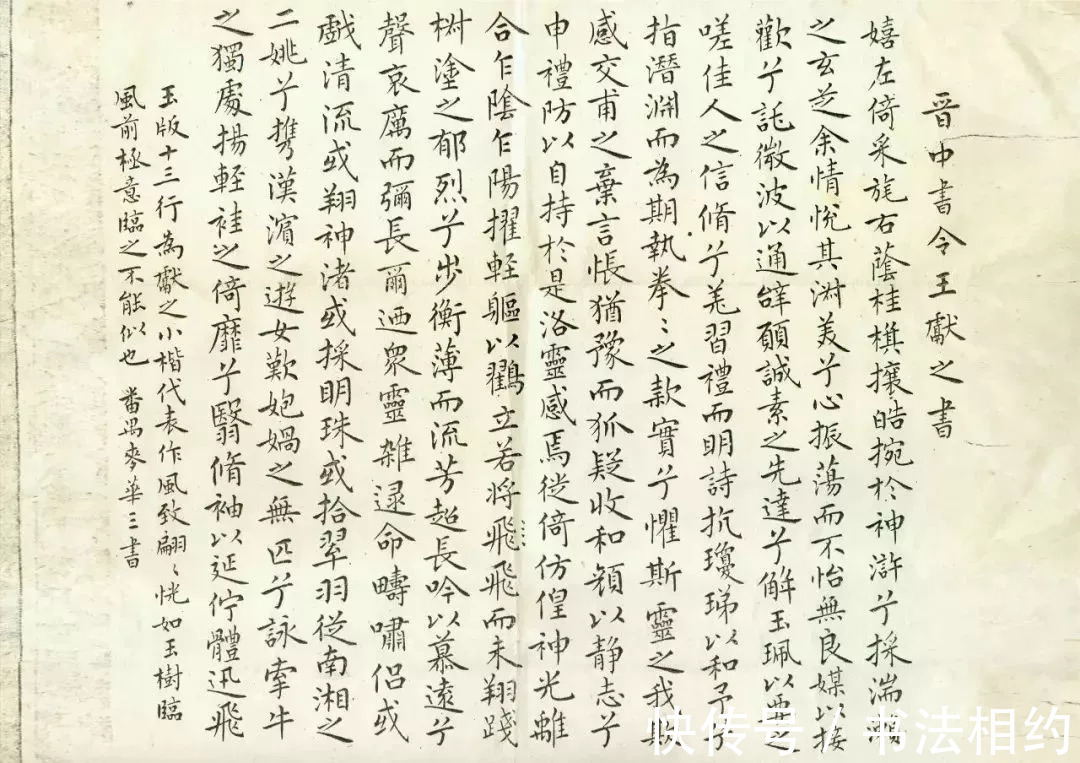 晋中書令王獻之書
嬉左倚采旄右蔭桂棋攘皓捥於神滸兮採湍瀨
之玄芝余情悅其淋美兮心振蕩而不怡無良媒以接
歡兮託微波以通辝願誠素之先達兮解玉珮以要之
嗟佳人之信脩兮羌習禮而明詩抗瓊珶以和予兮
指潛淵而為期執拳〻之款實兮懼斯靈之我欺
感交甫之棄言悵猶豫而狐疑收和顏以静志兮
申禮防以自持於是洛靈感焉從倚仿偟神光離
合乍陰乍陽擢軽軀以鸖立若將飛飛而未翔踐
樹塗之郁烈兮步衡薄而流芳超長吟以慕遠兮
聲哀厲而彌長爾迺衆靈雜逯命疇嘯侣或
戯清流或翔神渚或採明珠或拾翠羽從南湘之
二姚兮携漢濱之遊女歎媌媧之無匹兮詠牽牛
之獨處揚軽袿之倚靡兮翳脩袖以延佇體迅飛
玉版十三行為獻之小楷代表作風致翩〻恍如玉樹臨
風前極意臨之不能似也 番禺麥華三書
快传号/书法相约